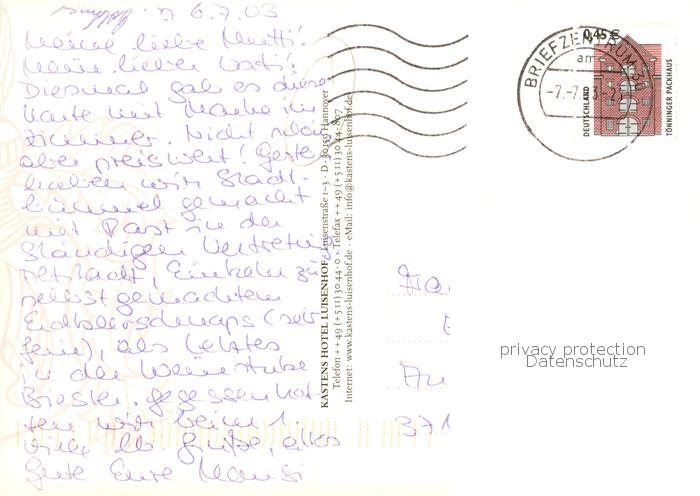 6.7.03
Meine liebe Mutti!
Mein lieber Vati!
Diesmal gab es diese
Karte mit Marke im
Zimmer. Nicht schön
aber preiswert! Gestern
haben wir Stadt-
bummel gemacht
mit Rast in der
Ständigen Vertretung
Altstadt, Einkehr zu
selbstgemachtem
Erdbeerschnaps (sehr
fein), als Letztes
in der Weinstube
Gegessen hat-
ten wir beim
viele lb. Grüße, alles
Gute Eure Mausi
KASTENS HOTEL LUISENHOF · Luisenstraße 1–3 · D - 30159 Hannover
Telefon ++ 49 (+511) 30 44-0 · Telefax ++ 49 (+511) 30 44-807
Internet: www.kastens-luisenhof.de · eMail: info@kastens-luisenhof.de
BRIEFZENTRUM 30
am
-7.-7.
0,45 €
DEUTSCHLAND
TÖNNINGER PACKHAUS
371
privacy protection
Datenschutz